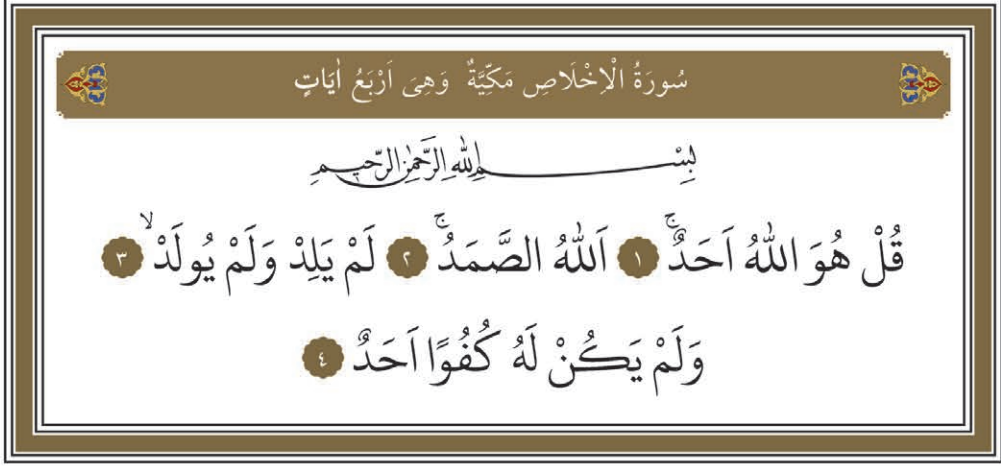 سُورَةُ الْاِخْلَاصِ مَكِّيَّةٌ وَهِىَ اَرْبَعُ اٰيَاتٍ
بِسْمِ اللّٰهِ الرَّحْمٰنِ الرَّحِيمِ
قُلْ هُوَ اللّٰهُ اَحَدٌۚ ١ اَللّٰهُ الصَّمَدُۚ ٢ لَمْ يَلِدْ وَلَمْ يُولَدْۙ ٣
وَلَمْ يَكُنْ لَهُ كُفُوًا اَحَدٌ ٤